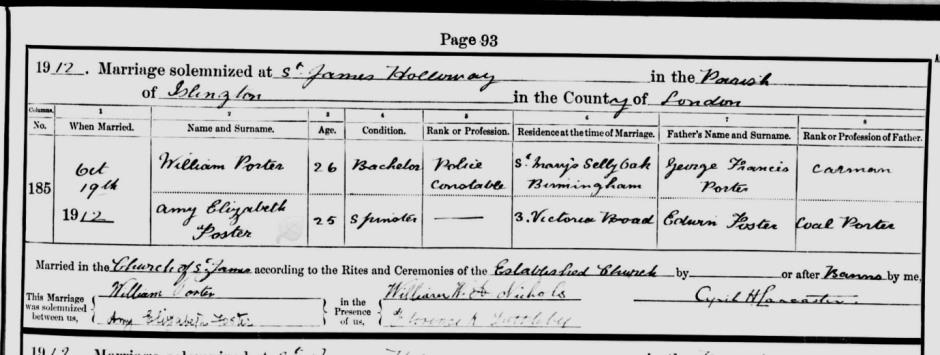 Page 93
1912. Marriage solemnized at St James Holloway in the Parish
of Islington in the County of London
Columns. 1 2 3 4 5 6 7 8
No. When Married. Name and Surname. Age. Condition. Rank or Profession. Residence at the time of Marriage. Father's Name and Surname. Rank or Profession of Father.
185 Oct 19th 1912 William Porter 26 Bachelor Police Constable St Mary's Selly Oak Birmingham George Francis Porter Carman
Amy Elizabeth Foster 25 Spinster — 3. Victoria Road Edwin Foster Coal Porter
Married in the Church of St James according to the Rites and Ceremonies of the Established Church by or after Banns by me,
This Marriage was solemnized between us, William Porter in the Presence of us, William H. Nichols Cyril H Lancaster
Amy Elizabeth Foster Florence
1912 Marriage solemnized at